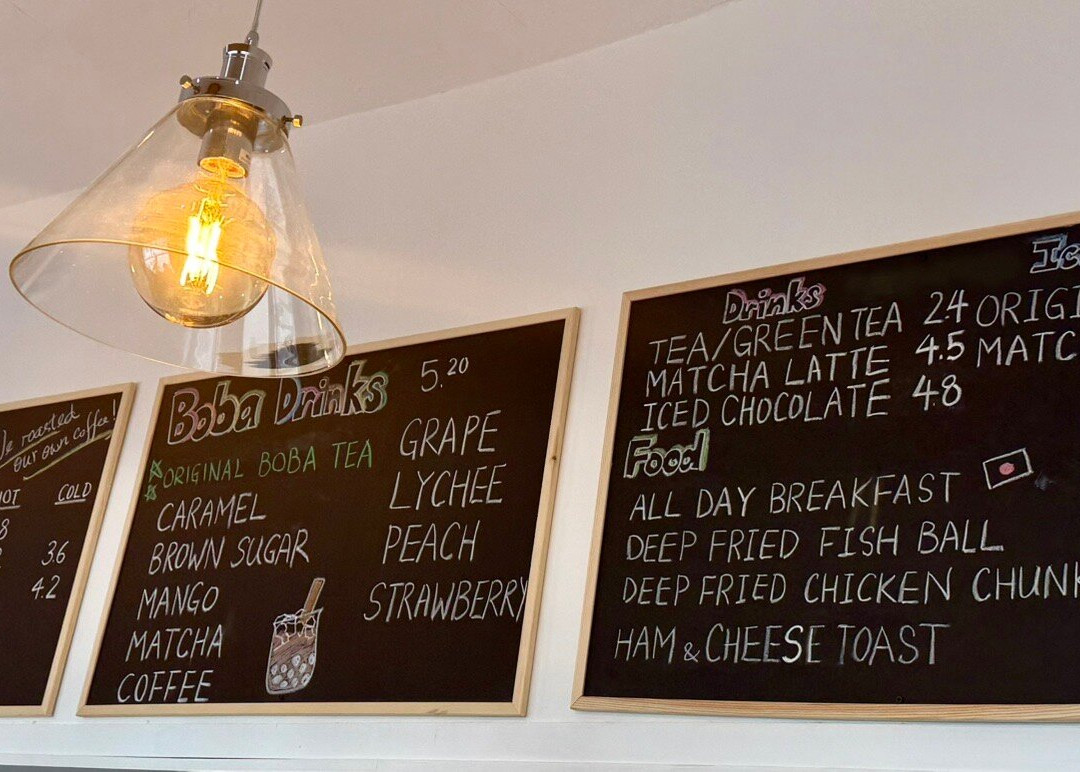 roasted
our own coffee!
COLD
3.6
4.2
Boba Drinks 5.20
ORIGINAL BOBA TEA
CARAMEL
BROWN SUGAR
MANGO
MATCHA
COFFEE
GRAPE
LYCHEE
PEACH
STRAWBERRY
Drinks
TEA/GREEN TEA 2.4
MATCHA LATTE 4.5
ICED CHOCOLATE 4.8
Food
ALL DAY BREAKFAST
DEEP FRIED FISH BALL
DEEP FRIED CHICKEN CHUNK
HAM & CHEESE TOAST
Ic
ORIGI
MATC